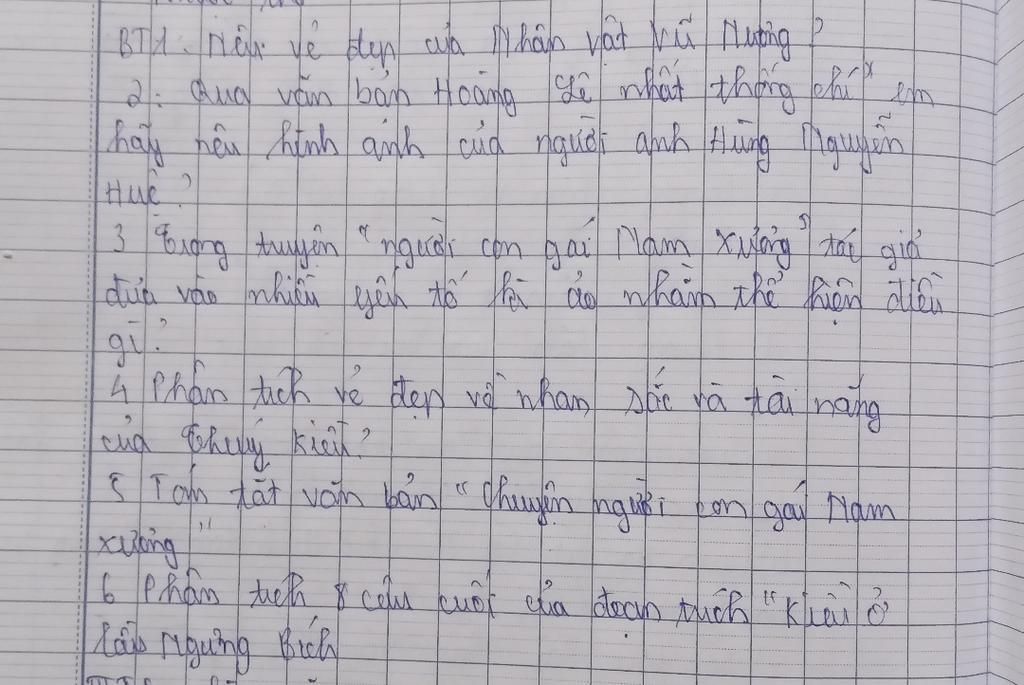 BT1. Nêu vẻ đẹp của Nhân vật Vũ Nương?
2: Qua văn bản Hoàng Lê nhất thống chí" em
hãy nêu hình ảnh của người anh Hùng Nguyễn
Huệ?
3 Trong truyện "người con gái Nam xương" tác giả
đưa vào nhiều yếu tố kì ảo nhằm thể hiện điều
gì?
4 Phân tích vẻ đẹp về nhan sắc và tài năng
của Thuý Kiều?
5 Tóm tắt văn bản "Chuyện người con gái Nam
xương"
6 Phân tích 8 câu cuối của đoạn trích "Kiều ở
lầu Ngưng Bích